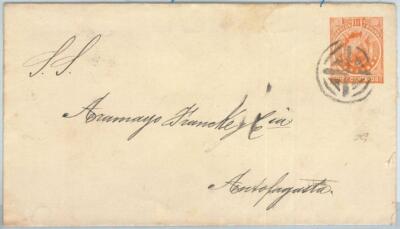 S. S.
Aramayo Francke y Cia
Antofagasta.